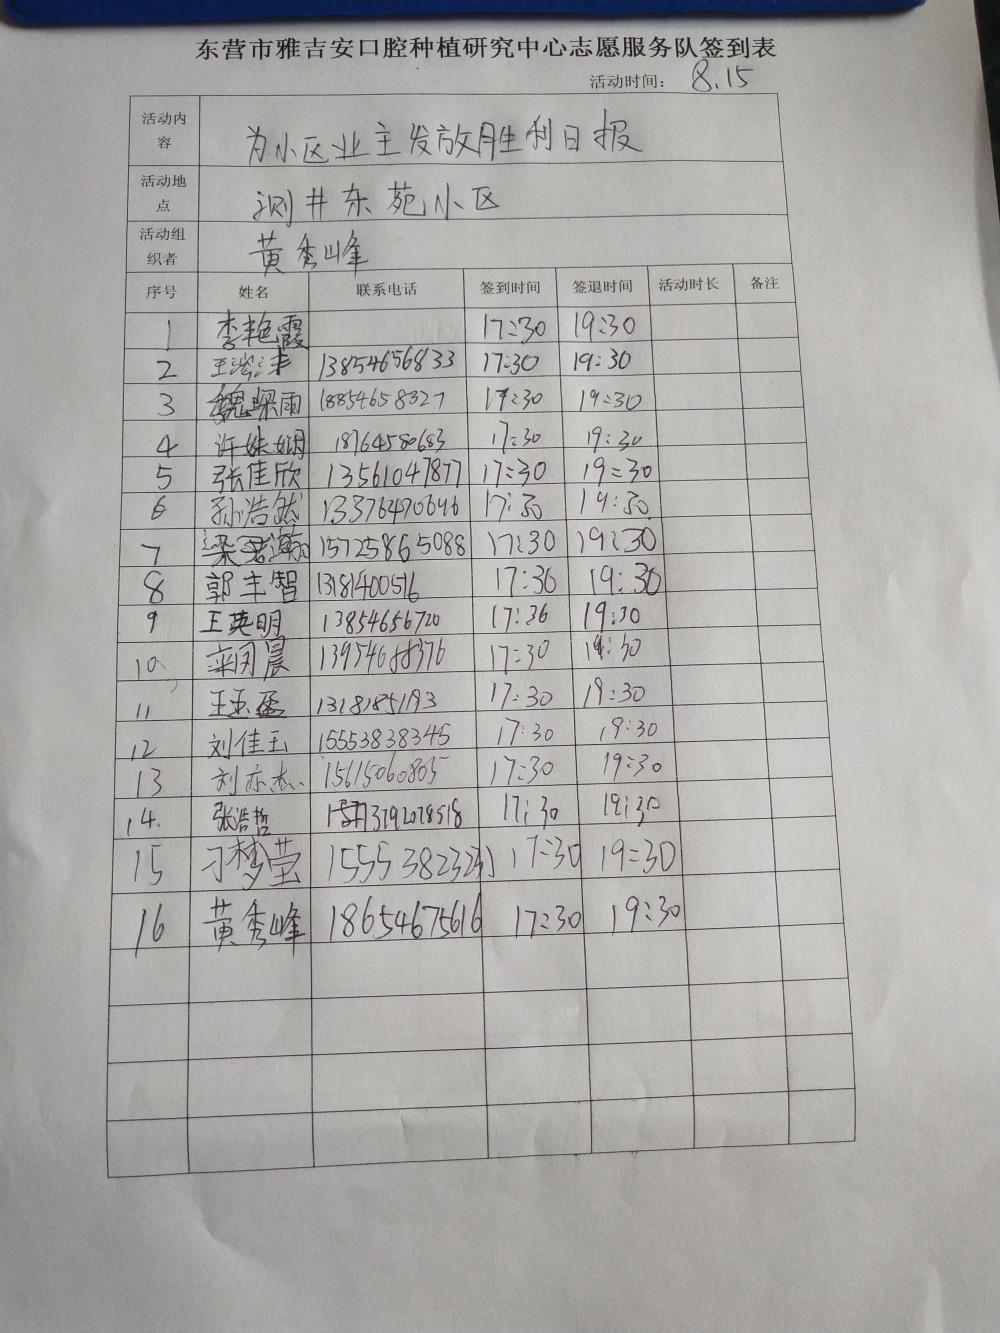 东营市雅吉安口腔种植研究中心志愿服务队签到表
活动时间： 8.15
活动内容 为小区业主发放胜利日报
活动地点 测井东苑小区
活动组织者 黄秀峰
序号 姓名 联系电话 签到时间 签退时间 活动时长 备注
1 李艳霞 17:30 19:30
2 13854656833 17:30 19:30
3 魏琛雨 18854658327 17:30 19:30
4 许姝娴 18764580683 17:30 19:30
5 张佳欣 13561047877 17:30 19:30
6 孙浩然 13376470646 17:30 19:30
7 梁君瀚 15725865088 17:30 19:30
8 郭主智 13181400516 17:30 19:30
9 王英明 13854656720 17:30 19:30
10、 栾闵晨 13954688376 17:30 19:30
11 王玉磊 17:30 19:30
12 刘佳玉 15553838345 17:30 19:30
13 刘亦杰 15615060805 17:30 19:30
14. 张浩哲 13792078518 17:30 19:30
15 刁梦莹 15553823231 17:30 19:30
16 黄秀峰 18654675616 17:30 19:30